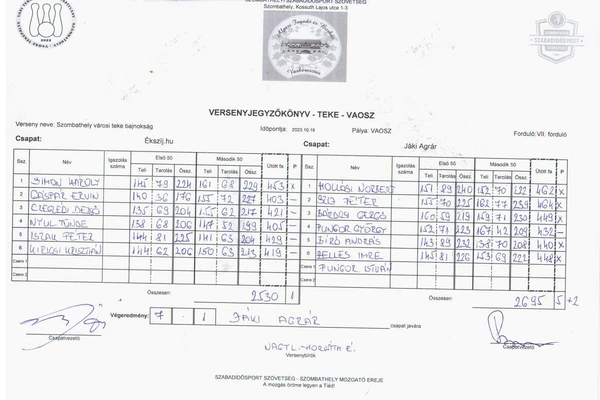 SZABADIDŐSPORT SZÖVETSÉG
Szombathely, Kossuth Lajos utca 1-3
SZABADIDŐSPORT
VERSENYJEGYZŐKÖNYV - TEKE - VAOSZ
Verseny neve: Szombathely városi teke bajnokság Időpontja: 2023.10.16 Pálya: VAOSZ Forduló: VII. forduló
Csapat: Ékszíj.hu Csapat: Jáki Agrár
Ssz. Név Igazolás száma Első 50 Második 50 Ütött fa P Ssz. Név Igazolás száma Első 50 Második 50 Ütött fa P
Teli Tarolás Össz. Teli Tarolás Össz. Teli Tarolás Össz. Teli Tarolás Össz.
1 SIMON KÁROLY 145 79 224 161 68 229 453 X 1 HOLLÓSI NORBERT 151 89 240 152 70 222 462 X
2 GÁSPÁR ERVIN 140 36 176 155 72 227 403 - PÉTER 155 70 225 162 77 239 464 X
3 CEGLÉDI DEZSŐ 135 69 204 155 62 217 421 - 160 59 219 159 71 230 449 X
4 NYUL TÜNDE 138 68 206 147 52 199 405 4 PUNGOR GYÖRGY 152 71 223 167 42 209 432 -
5 PÉTER 144 81 225 141 63 204 429 - 5 BÍRÓ ANDRÁS 143 89 232 138 70 208 440 X
6 KRISZTIÁN 144 62 206 150 63 213 419 - 6 BELLES IMRE 145 81 226 153 69 222 448 X
Csere 1 Csere 1 PUNGOR ISTVÁN
Csere 2 Csere 2
Összesen: 2530 1 Összesen: 2695 5 +2
Végeredmény: 7 . 1 JÁKI AGRÁR csapat javára
Csapatvezető Csapatvezető
NAGYL.-HORVÁTH É.
Versenybírók
SZABADIDŐSPORT SZÖVETSÉG - SZOMBATHELY MOZGATÓ EREJE
A mozgás öröme legyen a Tiéd!